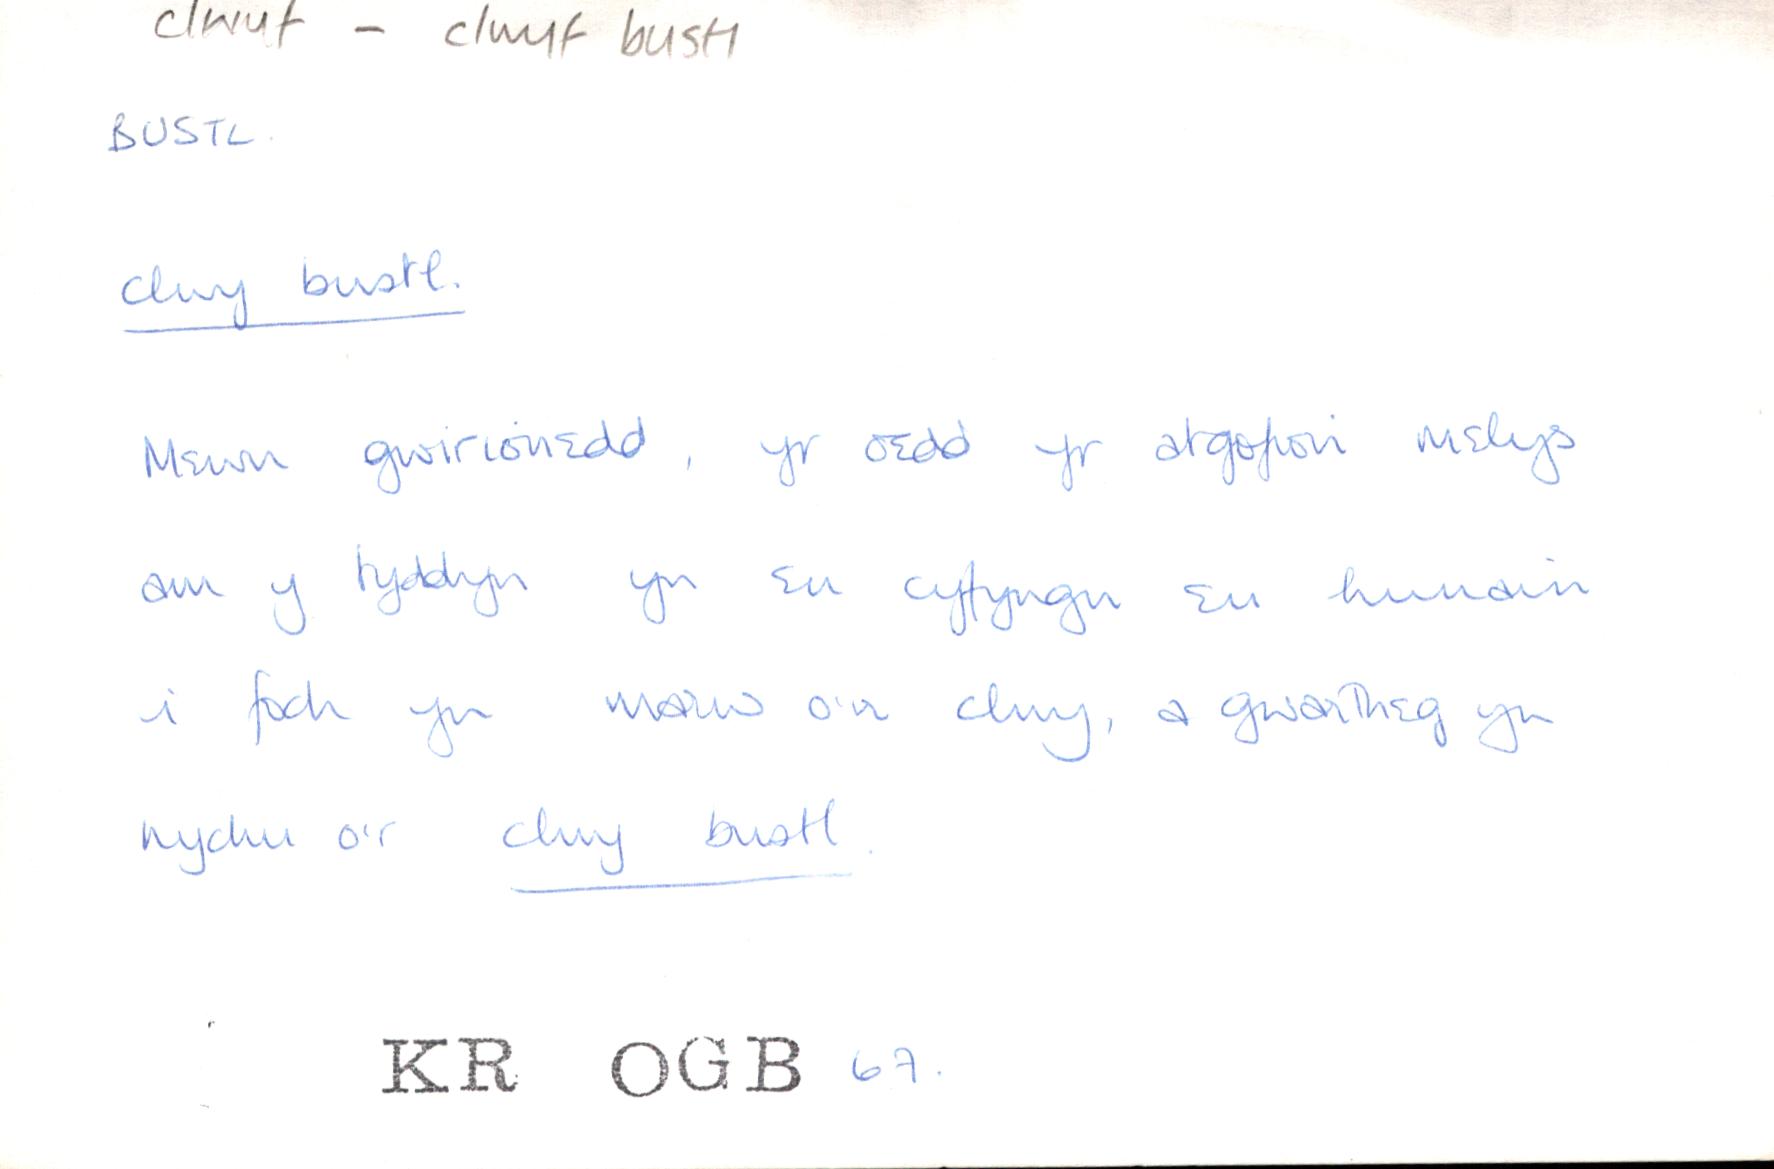 clwyf - clwyf bustl
BUSTL.
clwy bustl.
Mewn gwirionedd, yr oedd yr atgofion melys
am y tyddyn yn eu cyfyngu eu hunain
i foch yn marw o'r clwy, a gwartheg yn
nychu o'r clwy bustl.
KR OGB 67.